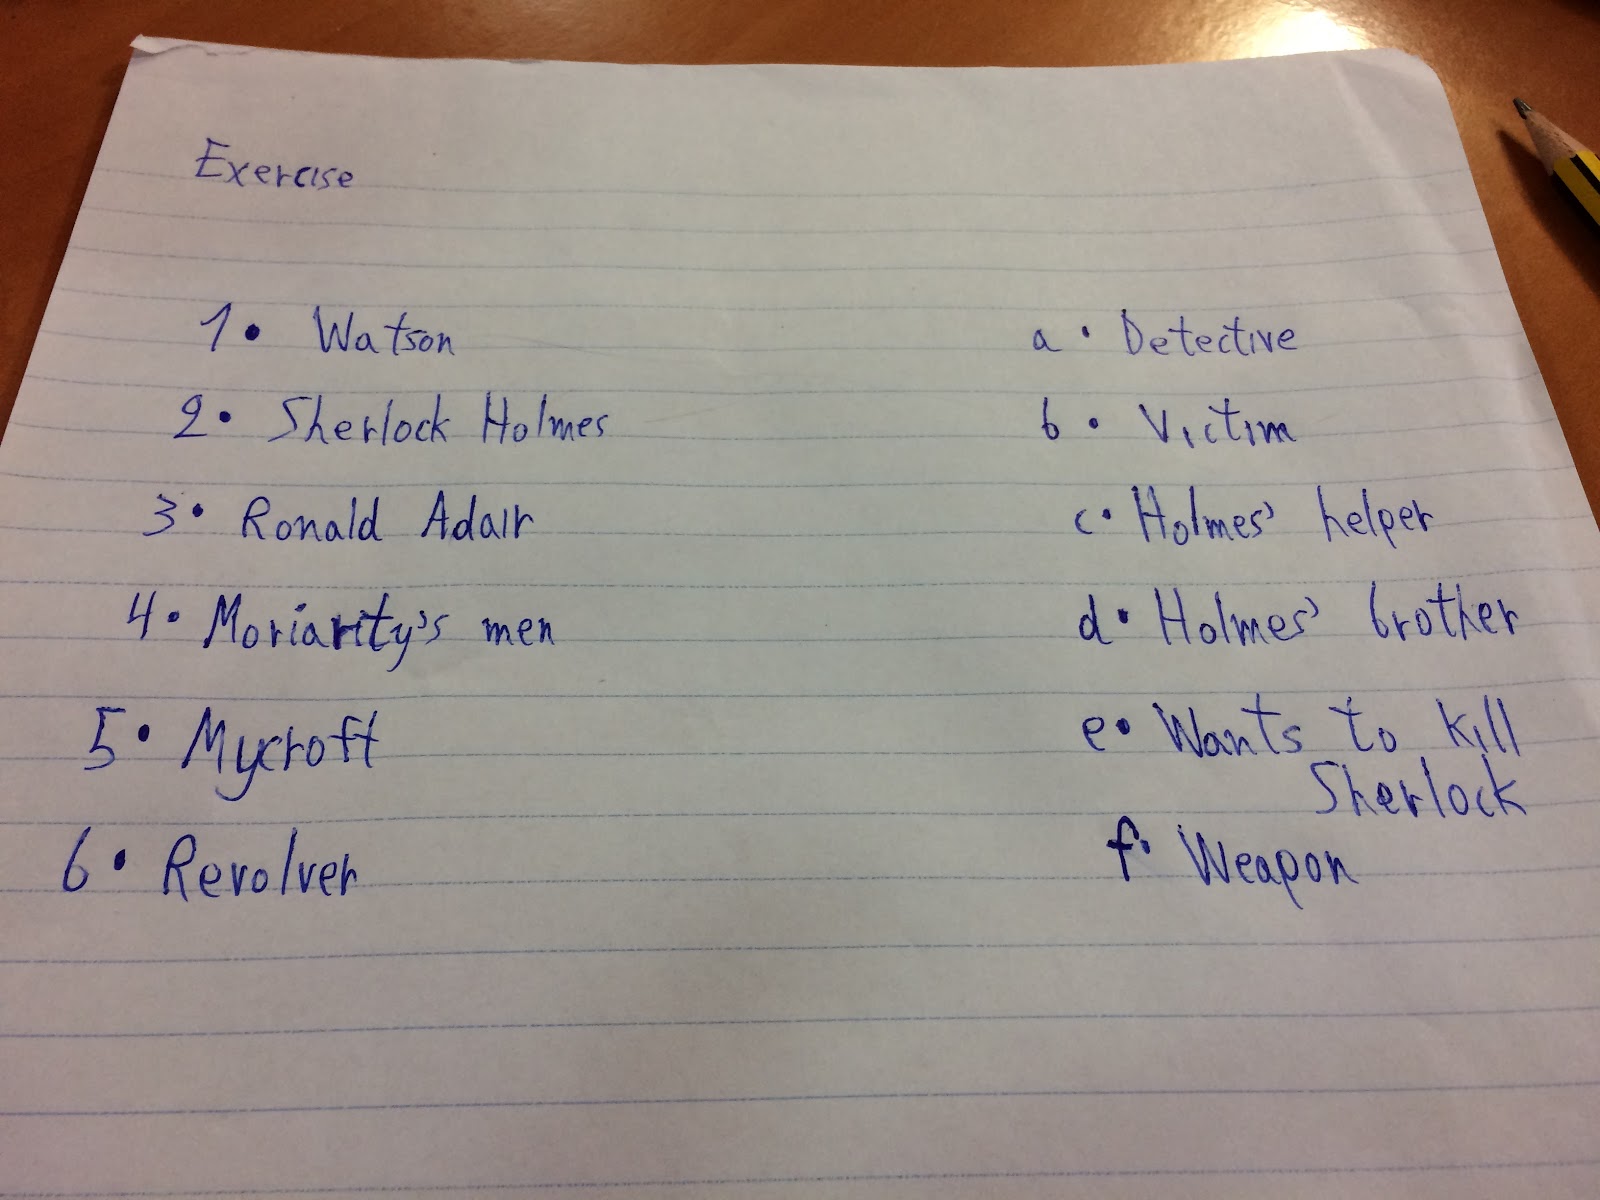 Exercise
1. Watson
a. Detective
2. Sherlock Holmes
b. Victim
3. Ronald Adair
c. Holmes' helper
4. Moriarity's men
d. Holmes' brother
5. Mycroft
e. Wants to kill
Sherlock
6. Revolver
f. Weapon